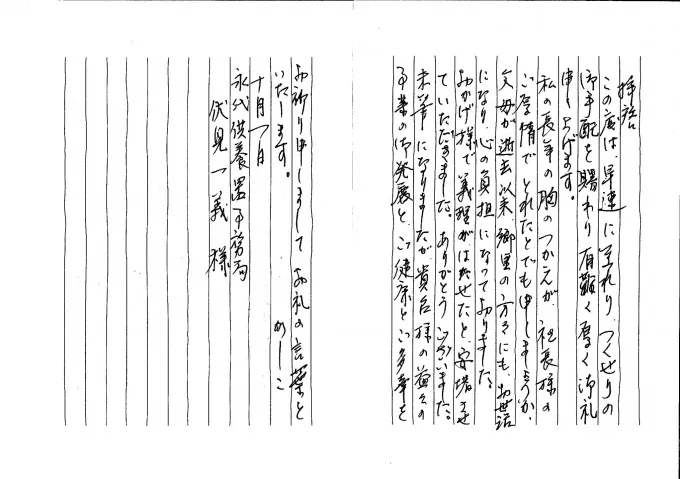 拝啓
この度は、早速に至れり、つくせりの
御手配を賜わり有難く厚く御礼
申し上げます。
私の長年の胸のつかえが、社長様の
ご厚情でとれたとでも申しましょうか、
父母が逝去以来、郷里の方々にも、お世話
になり、心の負担になっておりました。
おかげ様で義理がはたせたと、安堵させ
ていただきました。ありがとうございました。
末筆になりましたが、貴台様の益々の
事業の御発展と、ご健康とご多幸を
お祈り申しまして お礼の言葉と
いたします。
かしこ
十月一日
永代供養墓事務局
伏見一義様